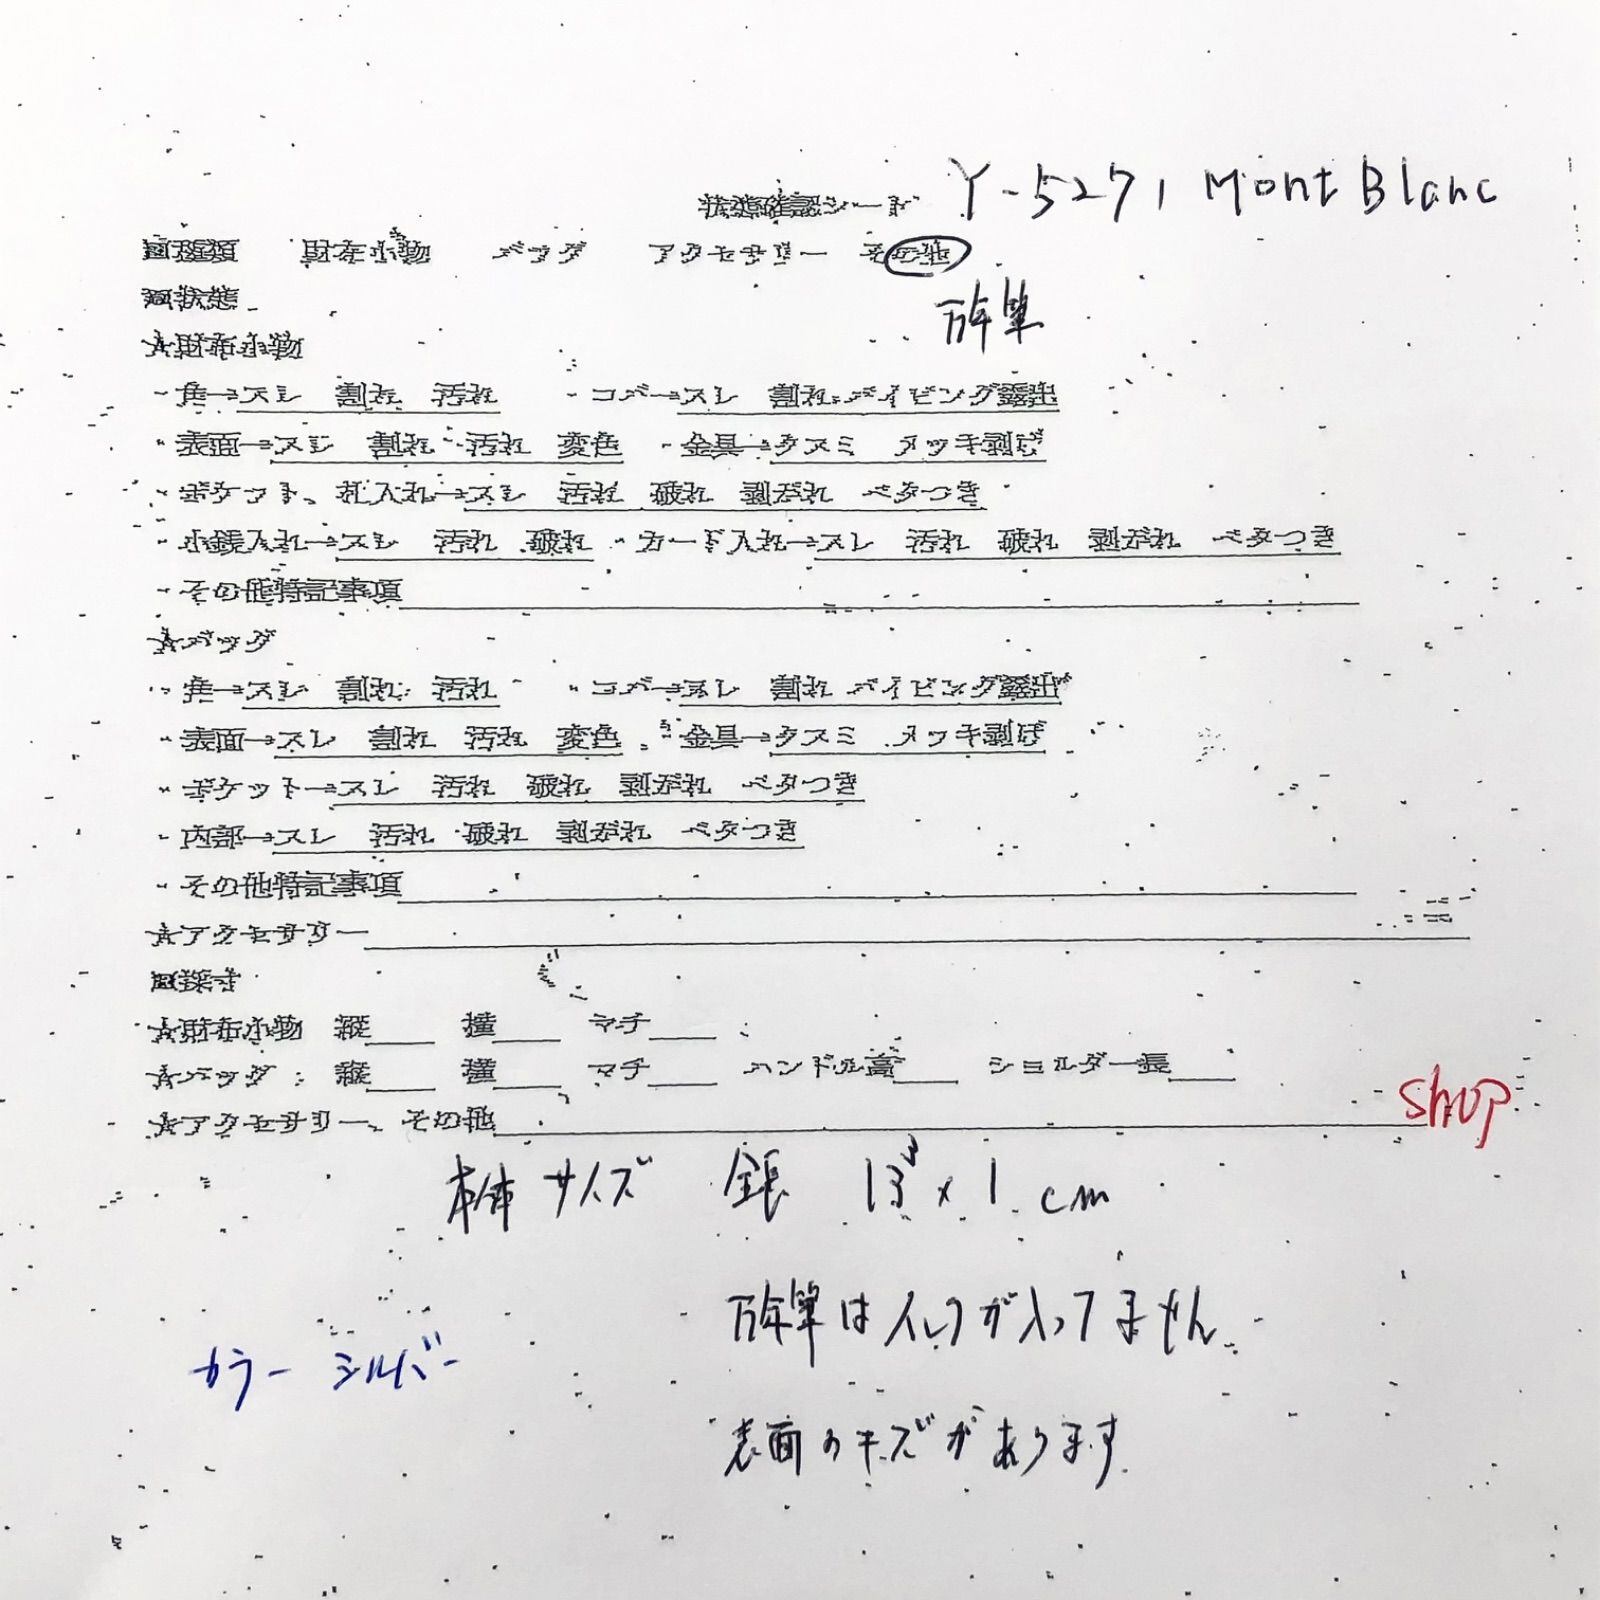 状態確認シート Y-5271 MontBlanc
■種類 財布小物 バッグ アクセサリー その他
万年筆
■状態
☆財布小物
・角→スレ 割れ 汚れ ・コバ→スレ 割れ パイピング露出
・表面→スレ 割れ 汚れ 変色 ・金具→クスミ メッキ剥げ
・ポケット、札入れ→スレ 汚れ 破れ 剥がれ ベタつき
・小銭入れ→スレ 汚れ 破れ ・カード入れ→スレ 汚れ 破れ 剥がれ ベタつき
・その他特記事項
☆バッグ
・角→スレ 割れ 汚れ ・コバ→スレ 割れ パイピング露出
・表面→スレ 割れ 汚れ 変色 ・金具→クスミ メッキ剥げ
・ポケット→スレ 汚れ 破れ 剥がれ ベタつき
・内部→スレ 汚れ 破れ 剥がれ ベタつき
・その他特記事項
☆アクセサリー
■採寸
☆財布小物 縦 横 マチ
☆バッグ 縦 横 マチ ハンドル高 ショルダー長
☆アクセサリー、その他
shop
本体サイズ 全長 13 x 1 cm
万年筆はインクが入ってません
カラー シルバー
表面のキズがあります